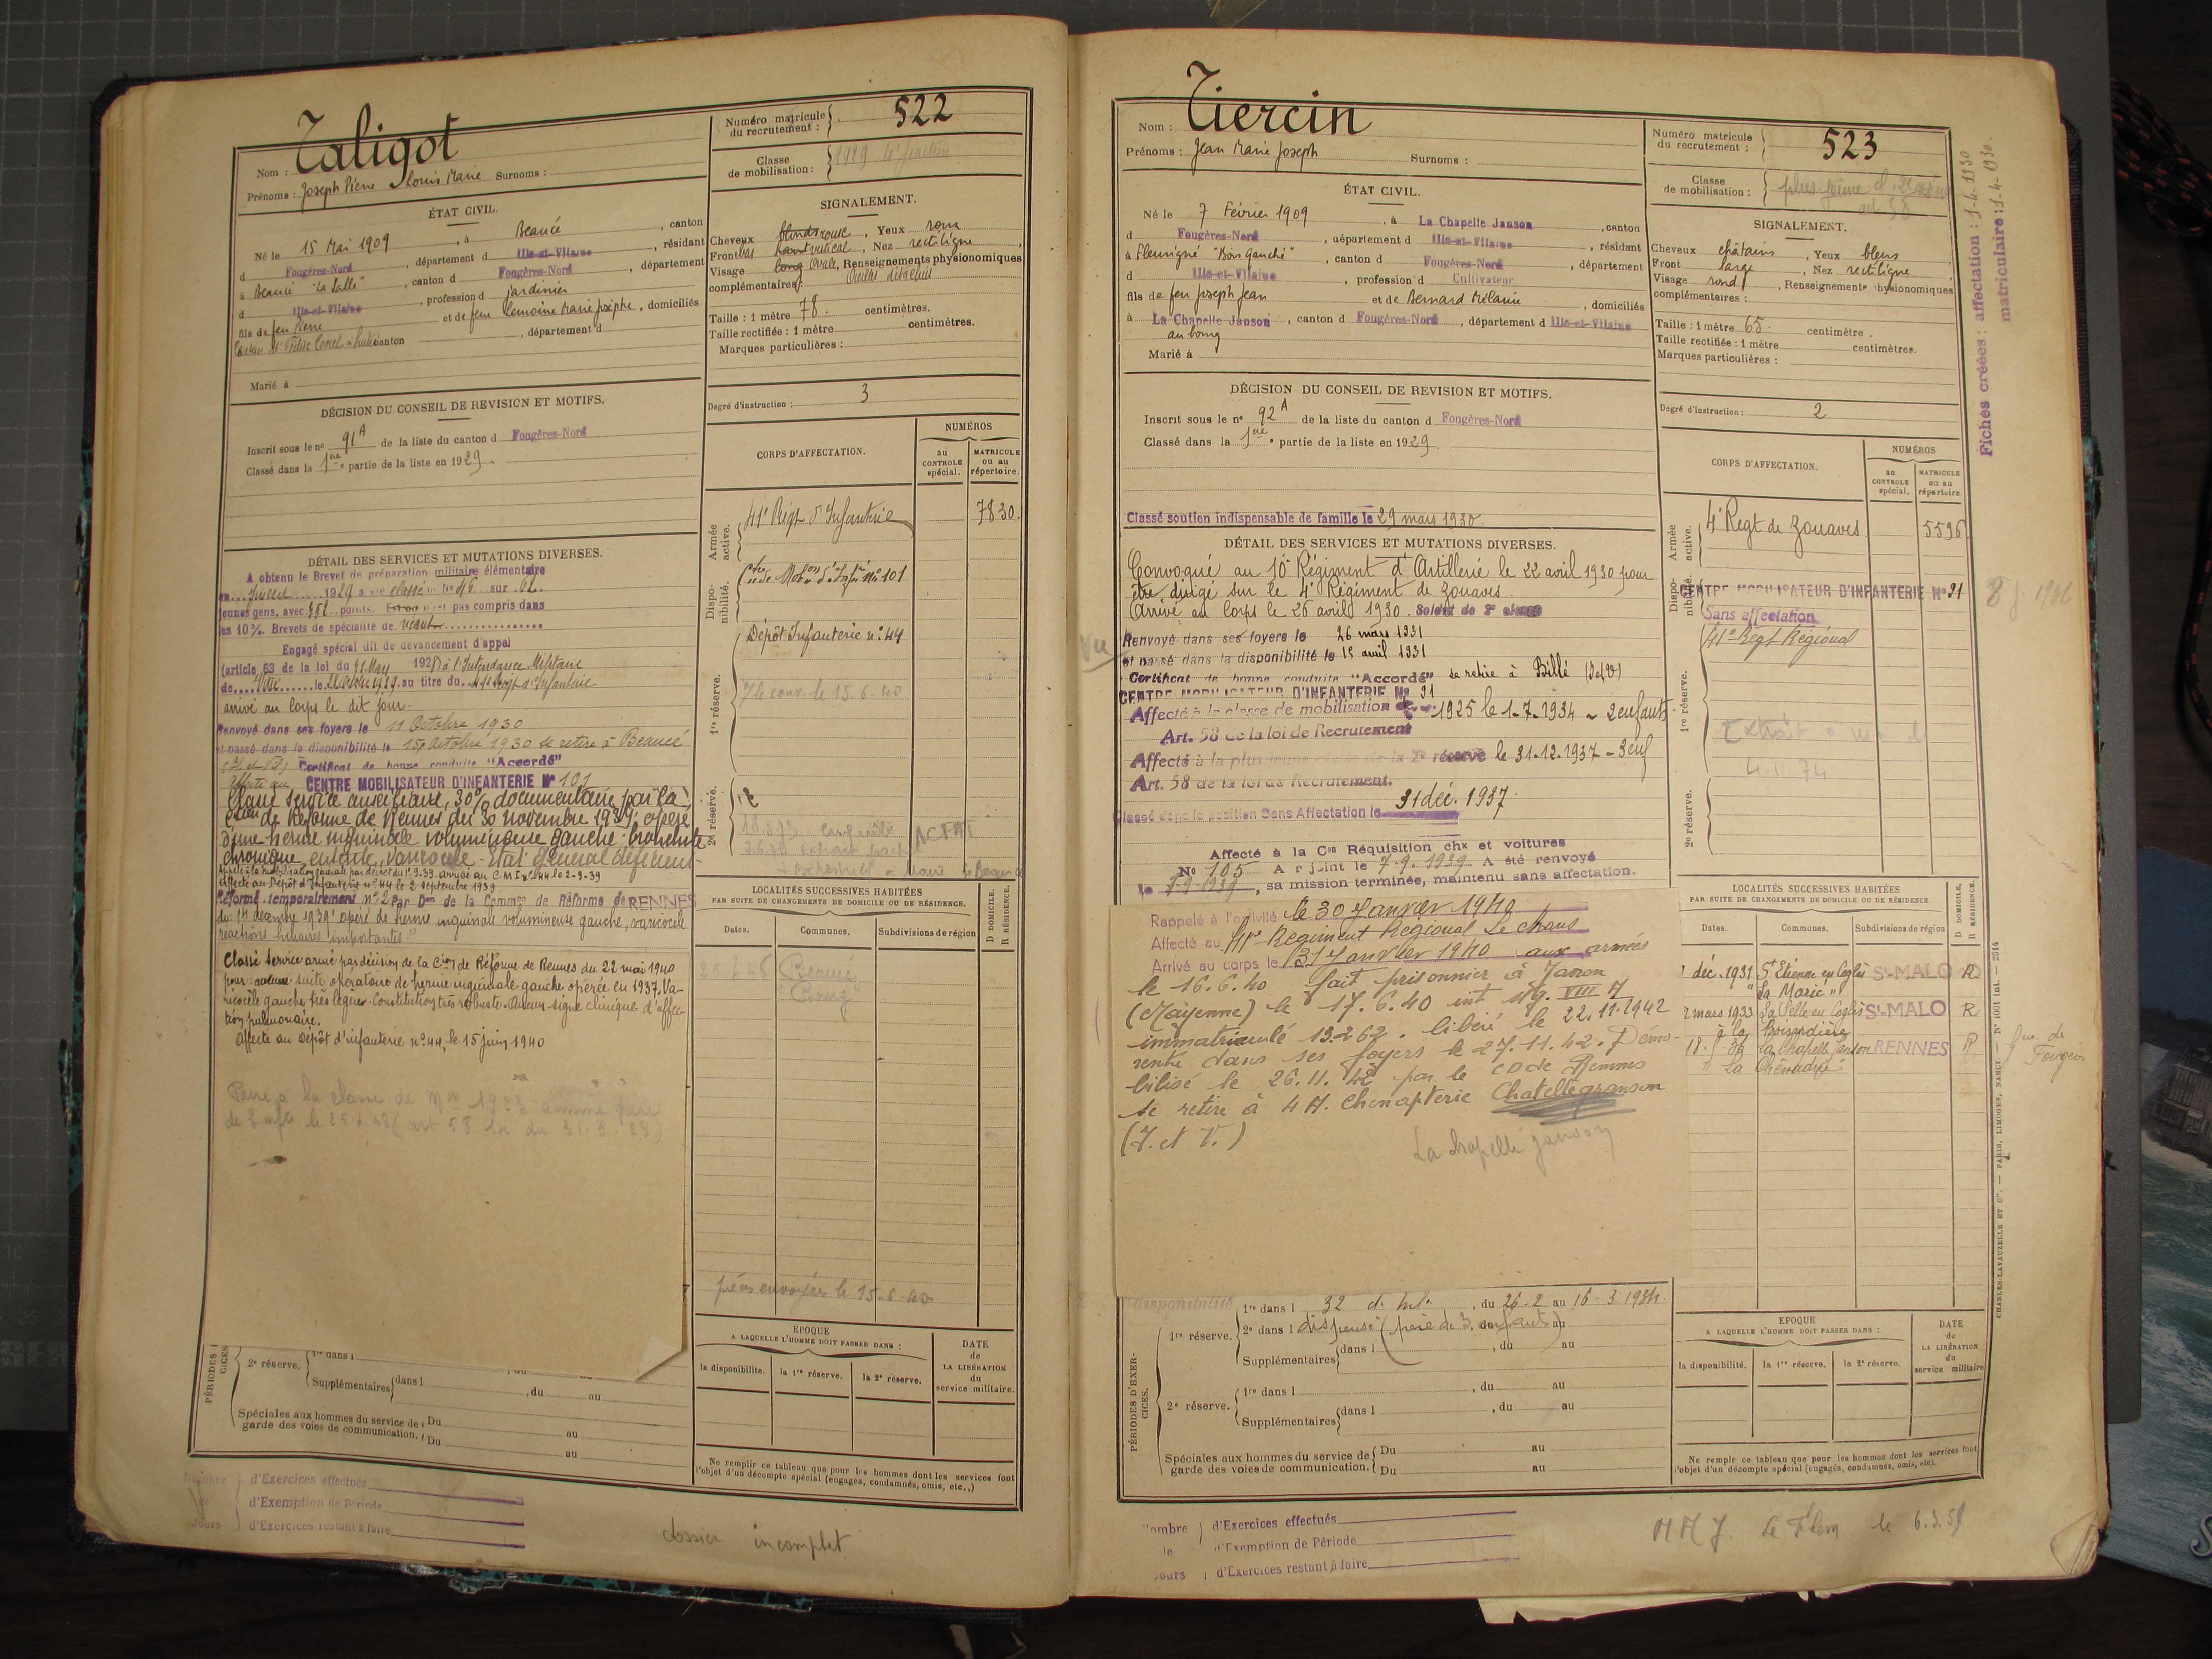 Taligot
Nom :
Prénoms : Joseph Pierre Louis Marie Surnoms :
Numéro matricule du recrutement : 522
Classe de mobilisation :
ÉTAT CIVIL.
Né le 15 Mai 1909, à Beaucé, canton
d Fougères-Nord, département d Ille-et-Vilaine, résidant
à Beaucé "La Salle", canton d Fougères-Nord, département
d Ille-et-Vilaine, profession d jardinier
fils de feu Pierre et de feue Lemoine Marie Josèphe, domiciliés
canton, département d
Marié à
SIGNALEMENT.
Cheveux blonds rouse, Yeux
Front bas haut vertical, Nez rectiligne
Visage long Ovale, Renseignements physionomiques
complémentaires : Oreilles détachées
Taille : 1 mètre 78 centimètres.
Taille rectifiée : 1 mètre centimètres.
Marques particulières :
Degré d'instruction : 3
DÉCISION DU CONSEIL DE REVISION ET MOTIFS.
Inscrit sous le no 91 A de la liste du canton d Fougères-Nord
Classé dans la 1re partie de la liste en 1929.
CORPS D'AFFECTATION.
NUMÉROS
au CONTROLE spécial.
MATRICULE ou au répertoire.
Armée active.
41e Régt d'Infanterie 7830.
Disponibilité.
Ctre de Mobon d'Infie No 101
1re réserve.
Dépôt Infanterie no 44
2e réserve.
DÉTAIL DES SERVICES ET MUTATIONS DIVERSES.
A obtenu le Brevet de préparation militaire élémentaire
en Juillet 1929 a été classé le No 46 sur 62
jeunes gens, avec 352 points. Est ou n'est pas compris dans
les 10% Brevets de spécialité de néant
Engagé spécial dit de devancement d'appel
(article 63 de la loi du à l'Intendance Militaire
de Vitré le au titre du 41e Régt d'Infanterie
arrivé au Corps le dit jour.
Renvoyé dans ses foyers le 11 Octobre 1930
et passé dans la disponibilité le 15 Octobre 1930 se retire à Beaucé
Certificat de bonne conduite "Accordé"
Affecté au CENTRE MOBILISATEUR D'INFANTERIE No 101
Classé service auxiliaire, 30% documentaire par la
Cion de Réforme de Rennes du 30 novembre 1939. opéré
d'une hernie inguinale volumineuse gauche. bronchite
chronique, entérite, varicocèle. Etat général déficient
Rappelé à la mobilisation générale par décret du 1.9.39. arrivé au C.M.I. no 44 le 2-9-39
Affecté au Dépôt d'Infanterie no 44 le 2 septembre 1939.
Réformé temporairement no 2 par Don de la Common de Réforme de RENNES
du 14 décembre 1939 "opéré de hernie inguinale volumineuse gauche, varicocèle
réactions importantes."
Classé Service armé par décision de la Cion de Réforme de Rennes du 22 mai 1940
pour : aucune suite opératoire de hernie inguinale gauche opérée en 1937. Va-
ricocèle gauche très légère. Constitution très robuste. Aucun signe clinique d'affec-
tion pulmonaire.
Affecté au Dépôt d'infanterie no 44, le 15 juin 1940
LOCALITÉS SUCCESSIVES HABITÉES
PAR SUITE DE CHANGEMENTS DE DOMICILE OU DE RÉSIDENCE.
Dates. Communes. Subdivisions de région
D DOMICILE.
R RÉSIDENCE.
Beaucé
pièces envoyées le 15-6-40
ÉPOQUE
A LAQUELLE L'HOMME DOIT PASSER DANS :
la disponibilité. la 1re réserve. la 2e réserve.
DATE de LA LIBÉRATION du service militaire.
2e réserve.
1re dans l
Supplémentaires dans l , du au
Spéciales aux hommes du service de garde des voies de communication. Du au
Du au
Ne remplir ce tableau que pour les hommes dont les services font
l'objet d'un décompte spécial (engagés, condamnés, omis, etc.,)
Nombre de Jours
d'Exercices effectués
d'Exemption de Période
d'Exercices restant à faire
dossier incomplet
Tiercin
Nom :
Prénoms : Jean Marie Joseph Surnoms :
Numéro matricule du recrutement : 523
Classe de mobilisation :
ÉTAT CIVIL.
Né le 7 Février 1909, à La Chapelle Janson, canton
d Fougères-Nord, département d Ille-et-Vilaine, résidant
à Fleurigné "Bon Gauché", canton d Fougères-Nord, département
d Ille-et-Vilaine, profession d Cultivateur
fils de feu Joseph Jean et de Bernard Mélanie, domiciliés
à La Chapelle Janson, canton d Fougères-Nord, département d Ille-et-Vilaine
au bourg
Marié à
SIGNALEMENT.
Cheveux châtains, Yeux bleus
Front large, Nez rectiligne
Visage rond, Renseignements physionomiques
complémentaires :
Taille : 1 mètre 65 centimètre.
Taille rectifiée : 1 mètre centimètres.
Marques particulières :
Degré d'instruction : 2
Fiches créées : affectation : 1-4-1930
matriculaire : 1-4-1930
DÉCISION DU CONSEIL DE REVISION ET MOTIFS.
Inscrit sous le no 92 A de la liste du canton d Fougères-Nord
Classé dans la 1re partie de la liste en 1929.
Classé soutien indispensable de famille le 29 mars 1930.
CORPS D'AFFECTATION.
NUMÉROS
au CONTROLE spécial.
MATRICULE ou au répertoire.
Armée active.
4e Regt de Zouaves 5596
Disponibilité.
CENTRE MOBILISATEUR D'INFANTERIE No 91
Sans affectation
1re réserve.
41e Regt Régional
2e réserve.
DÉTAIL DES SERVICES ET MUTATIONS DIVERSES.
Convoqué au 10e Régiment d'Artillerie le 22 avril 1930 pour
être dirigé sur le 4e Régiment de Zouaves.
Arrivé au corps le 26 avril 1930. Soldat de 2e classe
Renvoyé dans ses foyers le 26 mars 1931
et passé dans la disponibilité le 15 avril 1931
Certificat de bonne conduite "Accordé" se retire à Billé (I et V)
CENTRE MOBILISATEUR D'INFANTERIE No 91
Affecté à la classe de mobilisation de 1925 le 1-7-1934 - 2 enfants
Art. 58 de la loi de Recrutement
Affecté à la plus jeune classe de la 2e réserve le 31.12.1937 - 3 enf
Art. 58 de la loi de Recrutement.
Classé dans la position Sans Affectation le 31 déc. 1937.
Affecté à la Con Réquisition chx et voitures
No 105 A rejoint le 7.9.1939. A été renvoyé
le 7-9-1939, sa mission terminée, maintenu sans affectation.
Rappelé à l'activité le 30 Janvier 1940
Affecté au 41e Régiment Régional Le Mans
Arrivé au corps le 31 Janvier 1940 aux armées
le 16.6.40 fait prisonnier à Javron
(Mayenne) le 17.6.40 int Stg. VIII A
immatriculé 13.262. libéré le 22.11.1942
rentré dans ses foyers le 27.11.42. Démo-
bilisé le 26.11.42 par le CD de Rennes
se retire à Chatellegranson
(I. et V.)
La Chapelle Janson
LOCALITÉS SUCCESSIVES HABITÉES
PAR SUITE DE CHANGEMENTS DE DOMICILE OU DE RÉSIDENCE.
Dates. Communes. Subdivisions de région
D DOMICILE.
R RÉSIDENCE.
déc. 1931 St Etienne en Coglès St-MALO
mars 1933 La Selle en Coglès St-MALO R
18. 36 La Chapelle Janson RENNES R
1re réserve.
1re dans l 32 d. Inf. , du 26-2 au 16-3 1934.
2e dans l dispensé (père de 3 enfants) au
Supplémentaires dans l , du au
PÉRIODES D'EXERCICES.
2e réserve.
1re dans l , du au
Supplémentaires dans l , du au
Spéciales aux hommes du service de garde des voies de communication. Du au
Du au
EPOQUE
A LAQUELLE L'HOMME DOIT PASSER DANS :
la disponibilité. la 1re réserve. la 2e réserve.
DATE de LA LIBÉRATION du service militaire
Ne remplir ce tableau que pour les hommes dont les services font
l'objet d'un décompte spécial (engagés, condamnés, omis, etc).
CHARLES-LAVAUZELLE ET Cie. — PARIS, LIMOGES, NANCY
Nombre de Jours
d'Exercices effectués
d'Exemption de Période
d'Exercices restant à faire
le 6.3.59